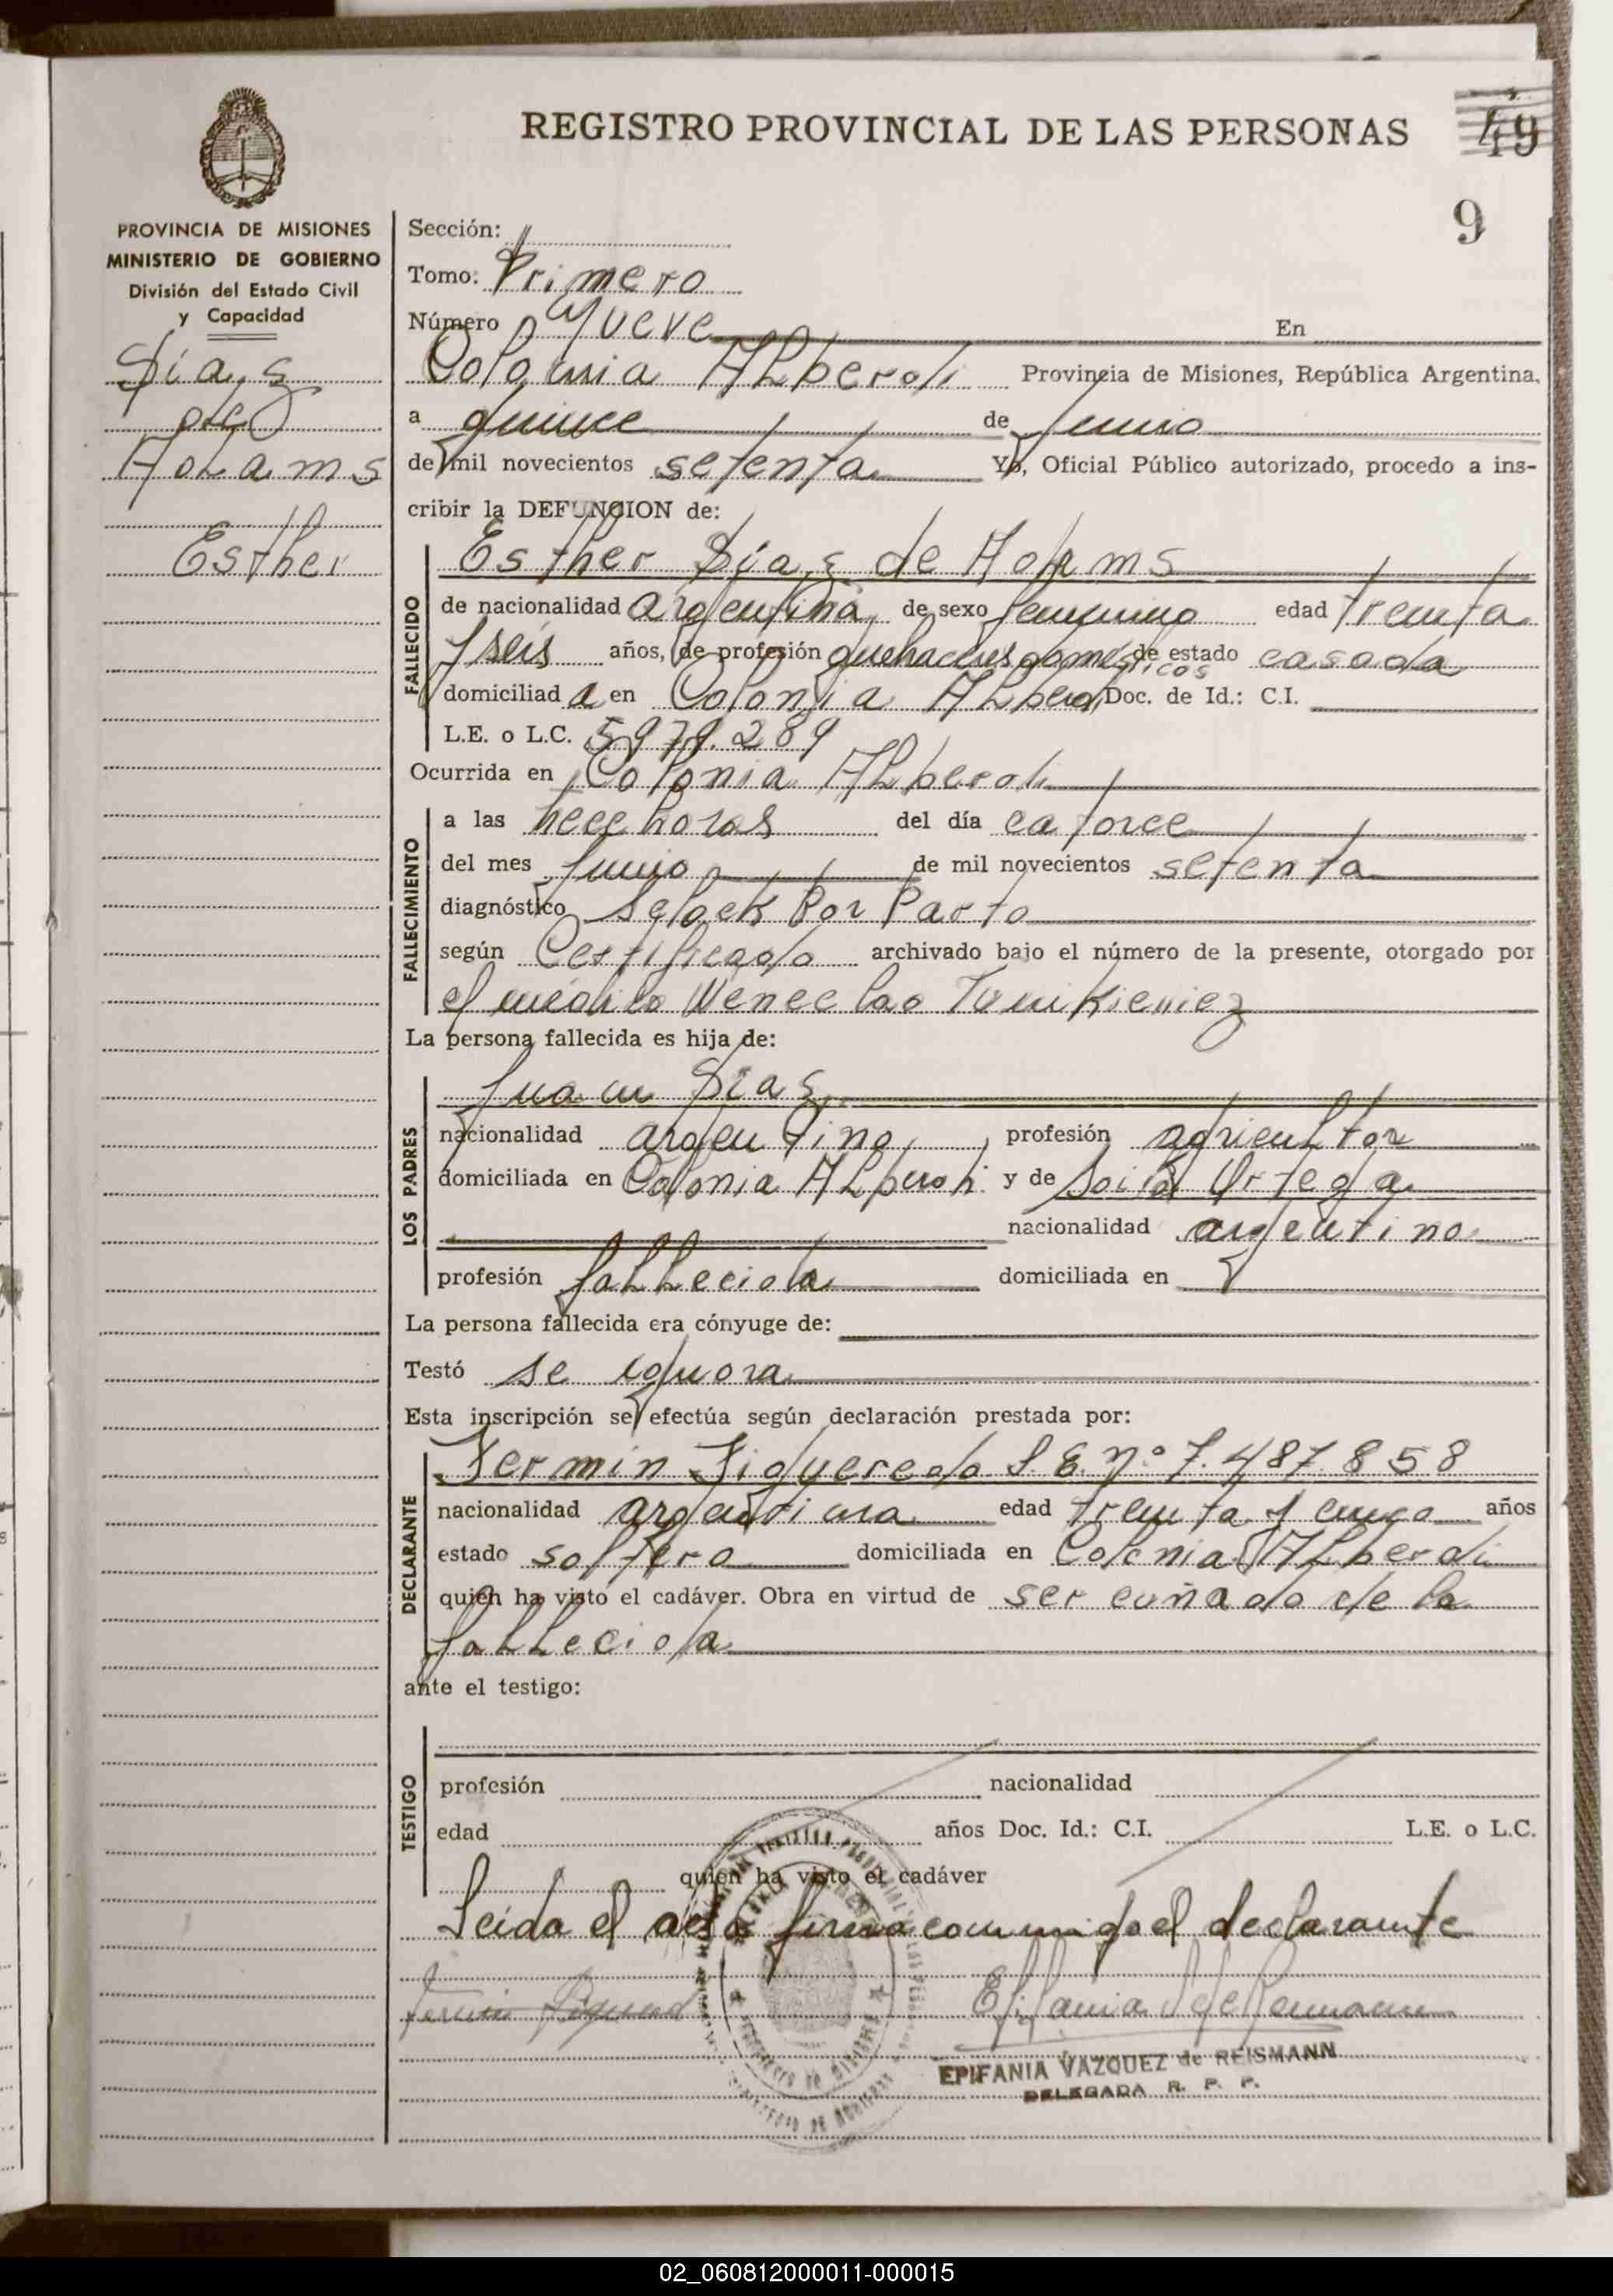 REGISTRO PROVINCIAL DE LAS PERSONAS
49
9
PROVINCIA DE MISIONES
MINISTERIO DE GOBIERNO
División del Estado Civil
y Capacidad
Díaz
de
Adams
Esther
Sección:
Tomo: Primero
Número Nueve En
Colonia Alberdi Provincia de Misiones, República Argentina,
a quince de Junio
de mil novecientos setenta Yo, Oficial Público autorizado, procedo a ins-
cribir la DEFUNCION de:
FALLECIDO
Esther Díaz de Adams
de nacionalidad argentina de sexo femenino edad treinta
y seis años, de profesión quehaceres domésticos de estado casada
domiciliad a en Colonia Alberdi Doc. de Id.: C.I.
L.E. o L.C. 5979.289
Ocurrida en Colonia Alberdi
FALLECIMIENTO
a las trece horas del día catorce
del mes Junio de mil novecientos setenta
diagnóstico Por Parto
según Certificado archivado bajo el número de la presente, otorgado por
el médico Wenceslao
La persona fallecida es hija de:
LOS PADRES
Juan Díaz
nacionalidad argentino profesión agricultor
domiciliada en Colonia Alberdi y de Ortega
nacionalidad argentina
profesión fallecida domiciliada en
La persona fallecida era cónyuge de:
Testó se ignora
Esta inscripción se efectúa según declaración prestada por:
DECLARANTE
Fermin Figueredo L.E. Nº 7.487.858
nacionalidad argentina edad treinta y cinco años
estado soltero domiciliada en Colonia Alberdi
quien ha visto el cadáver. Obra en virtud de ser cuñado de la
fallecida
ante el testigo:
TESTIGO
profesión nacionalidad
edad años Doc. Id.: C.I. L.E. o L.C.
quien ha visto el cadáver
Leida el acta firma conmigo el declarante
EPIFANIA VAZQUEZ de REISMANN
DELEGADA R. P. P.
02_060812000011-000015